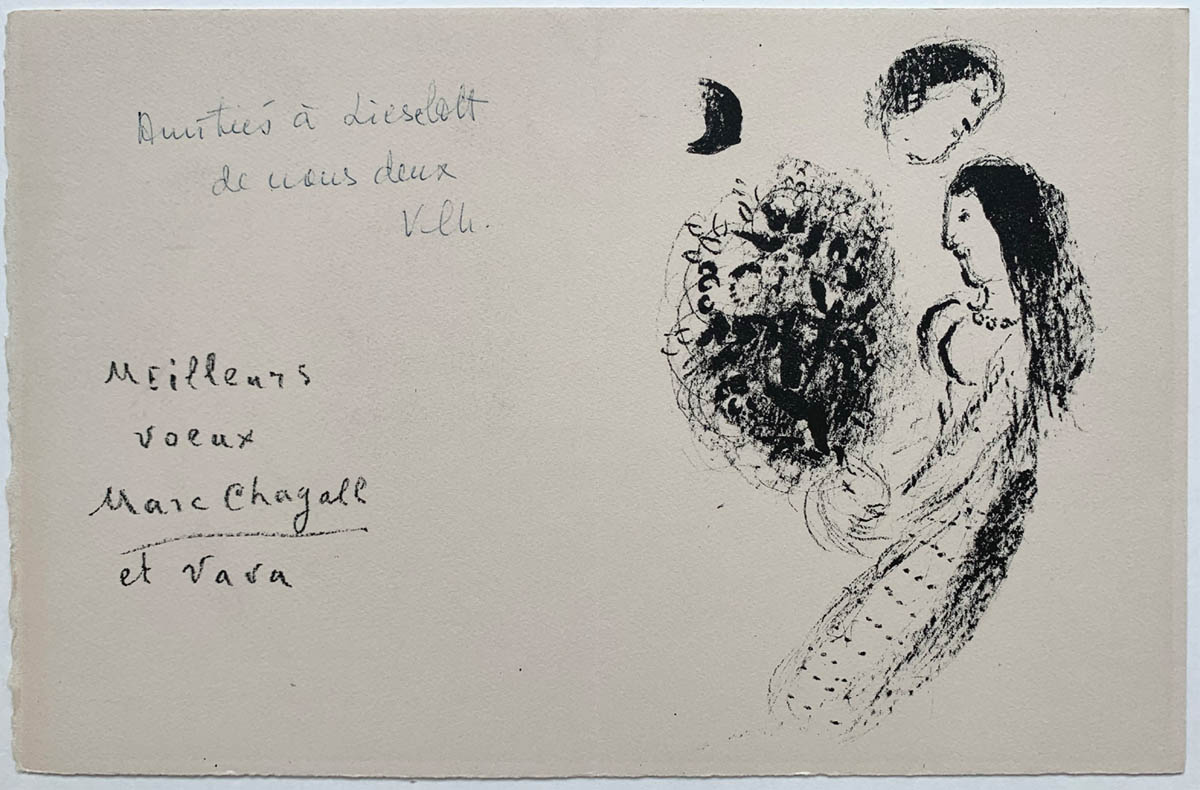 Amitiés à Lieselott
de nous deux
V.Ch.
Meilleurs
voeux
Marc Chagall
et Vava